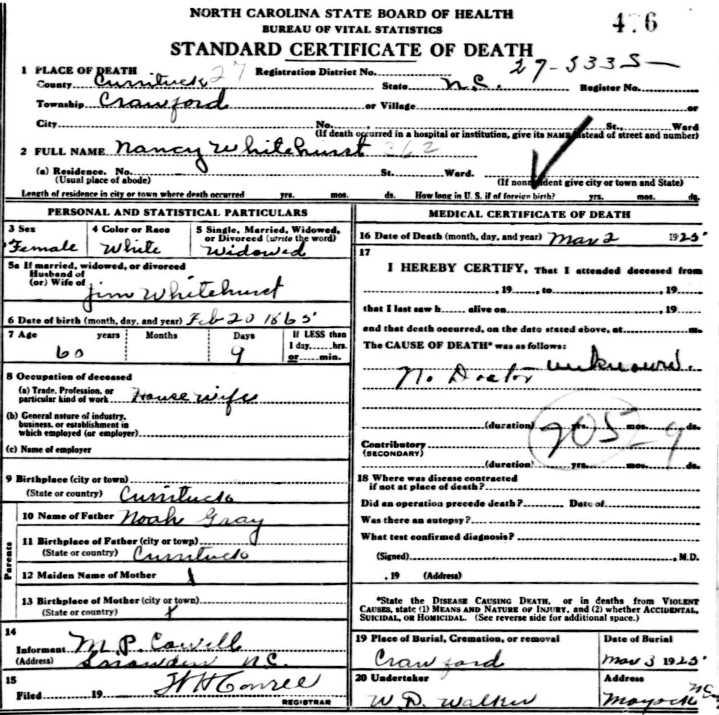 NORTH CAROLINA STATE BOARD OF HEALTH
BUREAU OF VITAL STATISTICS
476
STANDARD CERTIFICATE OF DEATH
1 PLACE OF DEATH
Registration District No. 27-5335
County Currituck 27 State N.C. Register No.
Township Crawford or Village or
City No. St., Ward
(If death occurred in a hospital or institution, give its NAME instead of street and number)
2 FULL NAME Nancy Whitehurst 362
(a) Residence. No. St. Ward.
(Usual place of abode) (If nonresident give city or town and State)
Length of residence in city or town where death occurred yrs. mos. ds. How long in U.S. if of foreign birth? yrs. mos. ds.
PERSONAL AND STATISTICAL PARTICULARS
3 Sex 4 Color or Race 5 Single, Married, Widowed, or Divorced (write the word)
Female White Widowed
5a If married, widowed, or divorced
Husband of
(or) Wife of Jim Whitehurst
6 Date of birth (month, day, and year) Feb 20 1865
7 Age years Months Days If LESS than
1 day, hrs.
or min.
60 9
8 Occupation of deceased
(a) Trade, Profession, or
particular kind of work House wife
(b) General nature of industry,
business, or establishment in
which employed (or employer)
(c) Name of employer
9 Birthplace (city or town)
(State or country) Currituck
Parents
10 Name of Father Noah Gray
11 Birthplace of Father (city or town)
(State or country) Currituck
12 Maiden Name of Mother
13 Birthplace of Mother (city or town)
(State or country)
14
Informant M. P. Cowell
(Address) Snowden N.C.
15
Filed 19
REGISTRAR
MEDICAL CERTIFICATE OF DEATH
16 Date of Death (month, day, and year) Mar 2 1925
17
I HEREBY CERTIFY, That I attended deceased from
, 19 , to , 19
that I last saw h alive on , 19
and that death occurred, on the date stated above, at m.
The CAUSE OF DEATH* was as follows:
unknown.
No Doctor
(duration) yrs. mos. ds.
205-9
Contributory
(SECONDARY)
(duration) yrs. mos. ds.
18 Where was disease contracted
if not at place of death?
Did an operation precede death? Date of
Was there an autopsy?
What test confirmed diagnosis?
(Signed) , M.D.
, 19 (Address)
*State the DISEASE CAUSING DEATH, or in deaths from VIOLENT
CAUSES, state (1) MEANS AND NATURE OF INJURY, and (2) whether ACCIDENTAL,
SUICIDAL, OR HOMICIDAL. (See reverse side for additional space.)
19 Place of Burial, Cremation, or removal Date of Burial
Crawford Mar 3 1925
20 Undertaker Address
W. D. Walker Moyock N.C.